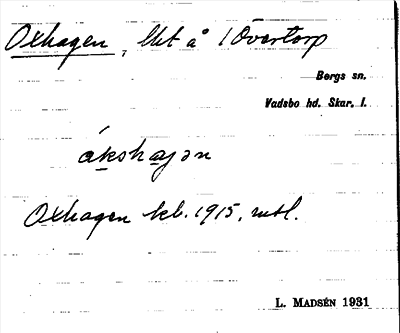 Oxhagen, lht å 1 Övertorp
Bergs sn.
Vadsbo hd. Skar. l.
ákshaȷən
Oxhagen kb. 1915, mtl.
L. MADSÉN 1931